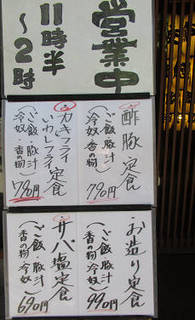 営業中
11時半
～2時
酢豚定食
(ご飯・豚汁
冷奴・香の物)
790円
カキフライ
いわしフライ定食
(ご飯・豚汁
冷奴・香の物)
790円
お造り定食
(ご飯・豚汁
香の物・冷奴)
990円
サバ塩定食
(ご飯・豚汁
香の物・冷奴)
690円